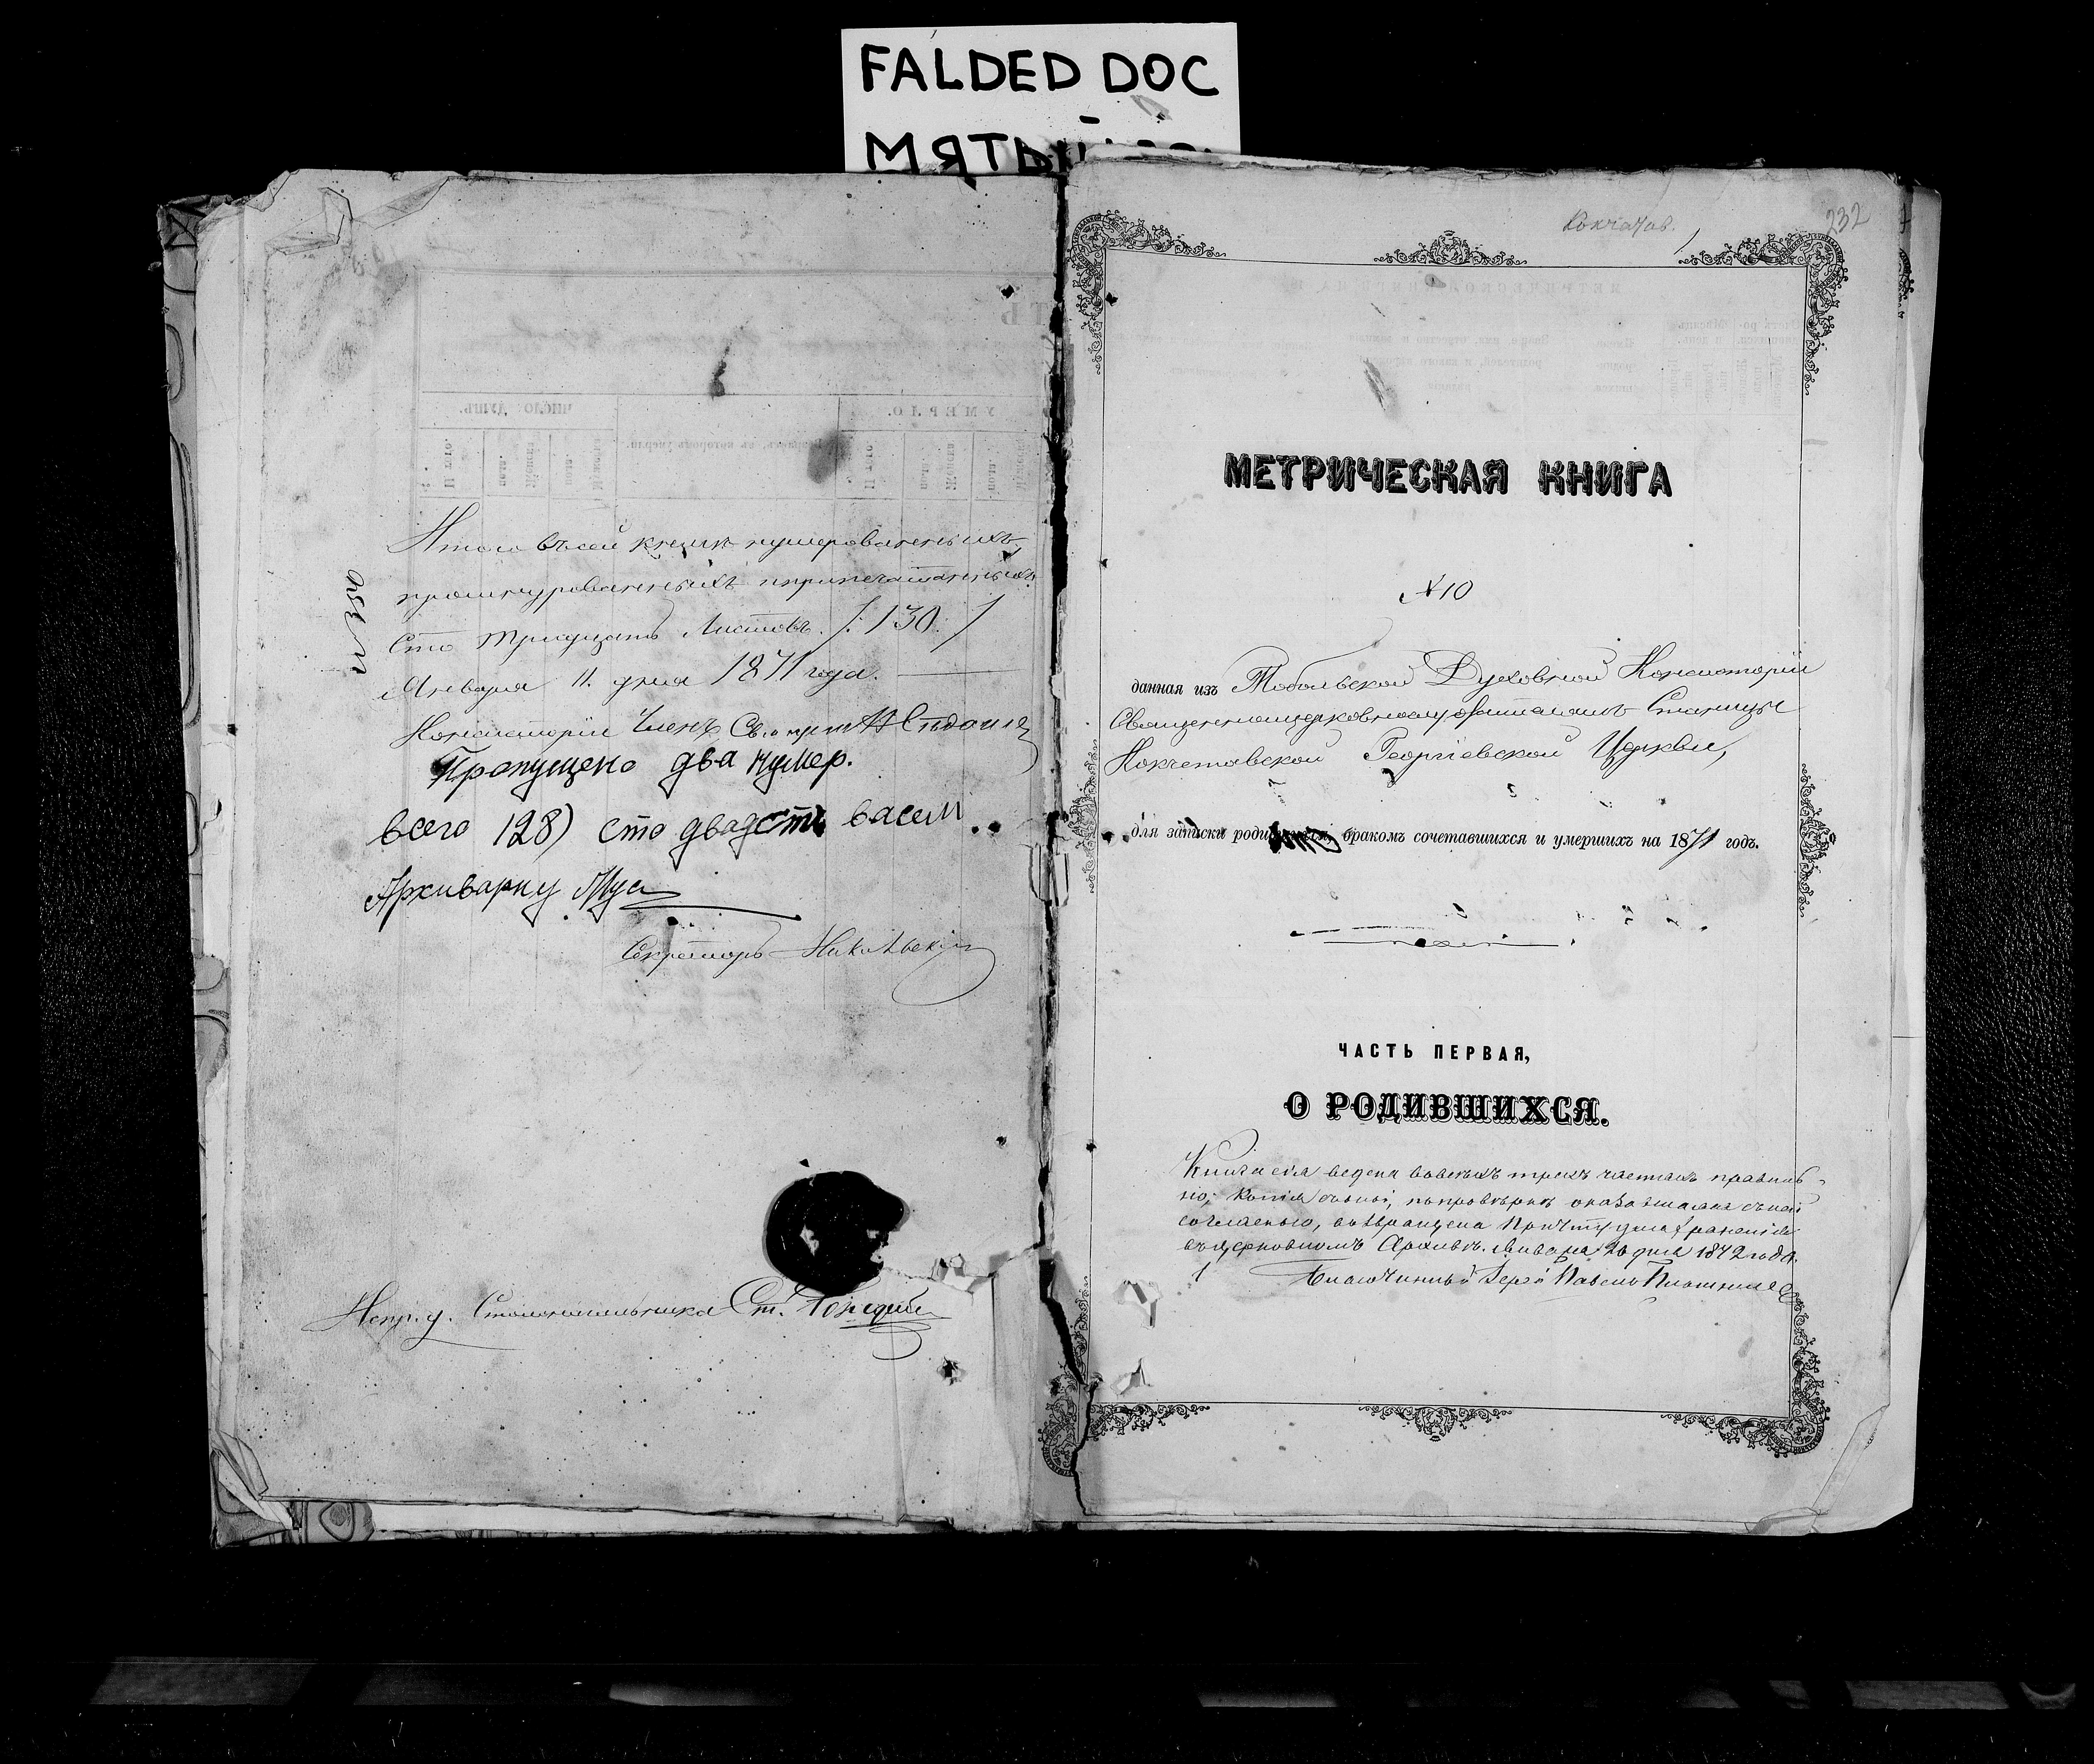 FALDED DOC
МЯТЫЙ
Итого въ сей книгѣ нумерованныхъ,
прошнурованныхъ и припечатанныхъ
Сто тридцать листовъ /:130:/
Января 11. дня 1871 года.
Консисторіи Членъ, Св.
Пропущено два нумер.
всего 128) сто двадсть васем
Архивариу
Секретарь Никольскій
Испр. д. Столоначальника Ст.
Кокчатав.
232
1
МЕТРИЧЕСКАЯ КНИГА
№ 10
данная изъ Тобольской Духовной Консисторіи
Священноцерковнослужителямъ Станицы
Кокчетавской Георгіевской Церкви,
для записки родившихся, бракомъ сочетавшихся и умершихъ на 1871 годъ.
ЧАСТЬ ПЕРВАЯ,
О РОДИВШИХСЯ.
Книга сія ведена во всѣхъ трехъ частяхъ правиль-
но; Копія съ оной, по провѣркѣ оказавшаяся съ ней
согласною, возвращена Причту для храненія
въ церковномъ Архивѣ. Января 20 дня 1872 года.
Благочинный Іерей Павелъ